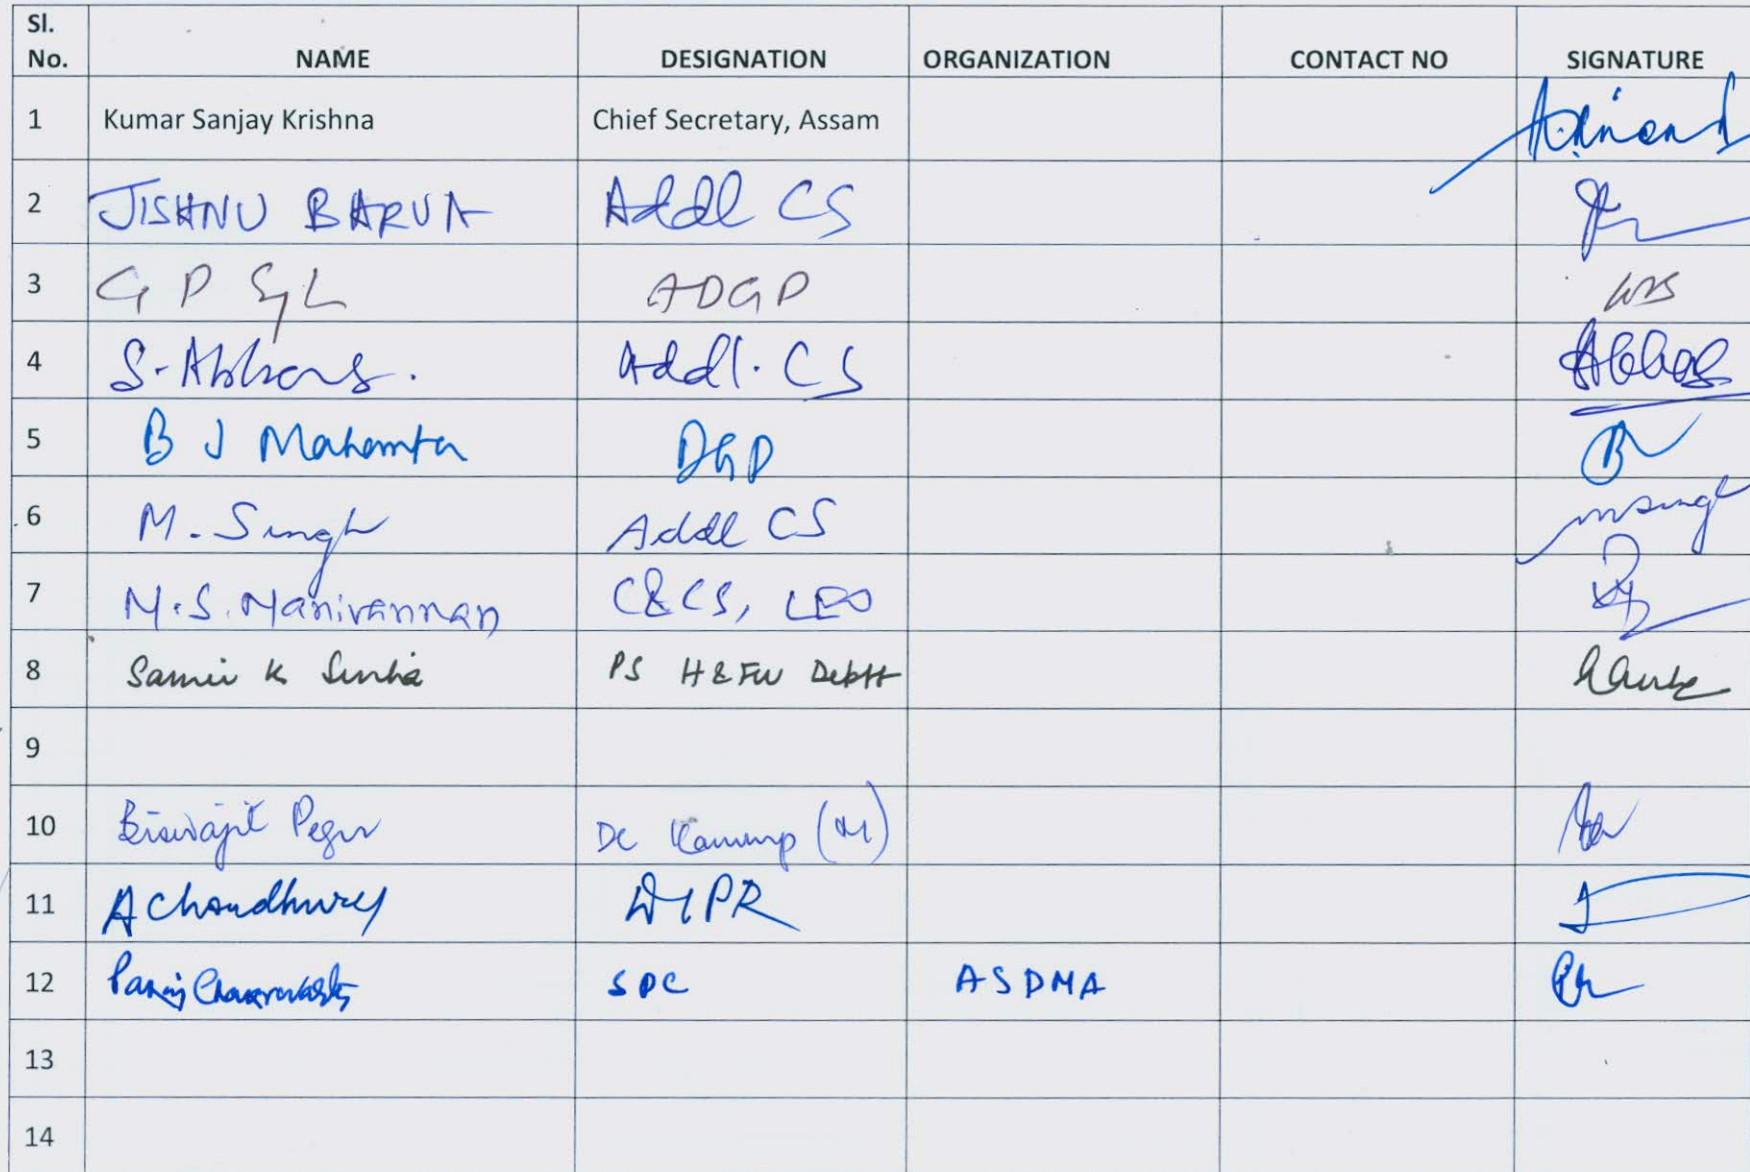 Sl. No. NAME DESIGNATION ORGANIZATION CONTACT NO SIGNATURE
1 Kumar Sanjay Krishna Chief Secretary, Assam
2 JISHNU BARUA Addl CS
3 G P ADGP
4 S. Abbas. Addl. CS Abbas
5 B J Mahanta DGP B
6 M. Singh Addl CS msingh
7 M.S. Manivannan C&CS, LEO
8 Samir K Sinha PS H&FW Deptt
9
10 Biswajit Pegu DC Kamrup (M)
11 A Choudhury DIPR
12 Pankaj Chakravarty SPC ASDMA
13
14